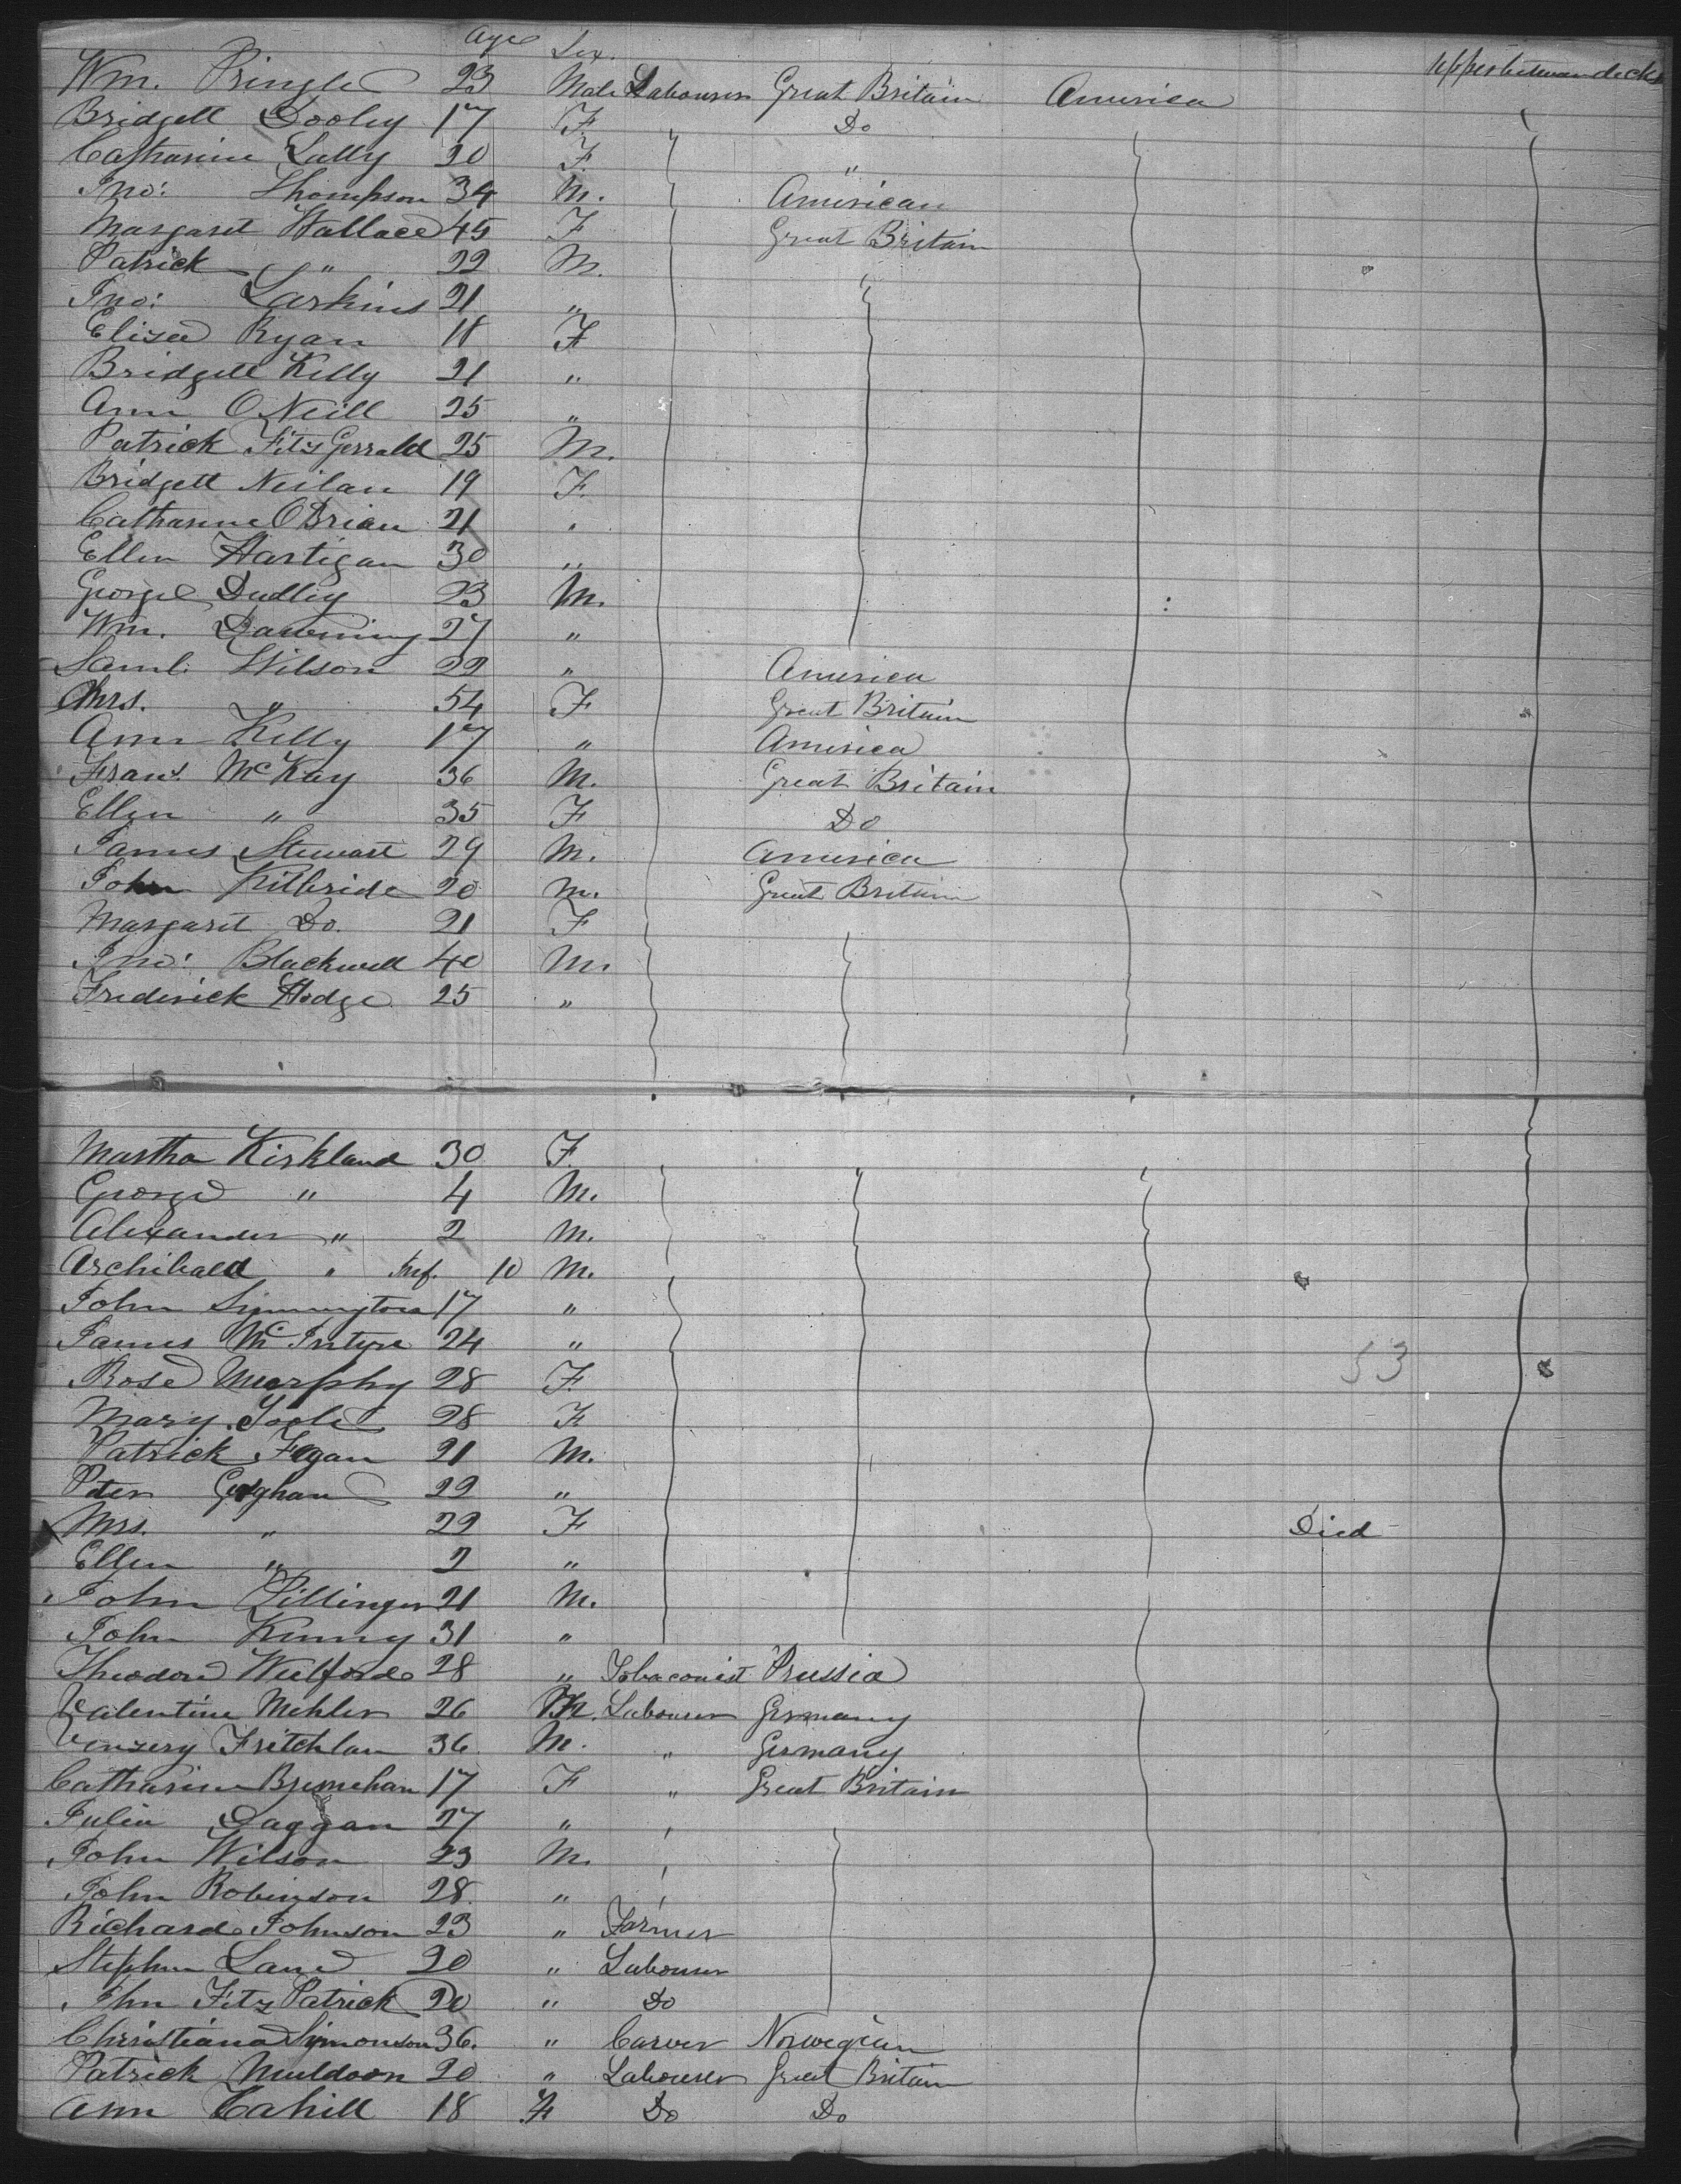 Age Sex
Wm. Pringle 23 Male Labourer Great Britain America Upper between decks
Bridgett Dooley 17 F. Do
Catharine Lally 20 F. "
Jno: Thompson 34 M. American
Margaret Wallace 45 F Great Britain
Patrick " 22 M.
Jno: Larkins 21 "
Eliza Ryan 18 F
Bridgett Kelly 21 "
Ann O Neill 25 "
Patrick Fitz Gerrald 25 M.
Bridgett Neilan 19 F.
Catharine O Brian 21 "
Ellen Hartigan 30 "
George Dudley 23 M.
Wm. Downing 27 "
Saml. Wilson 22 " America
Mrs. " 54 F Great Britain
Ann Kelly 17 " America
Frans. McKay 36 M. Great Britain
Ellen " 35 F Do
James Stewart 29 M. America
John Kilbride 20 M. Great Britain
Margaret Do. 21 F
Jno: Blackwell 40 M.
Frederick Hodge 25 "
Martha Kirkland 30 F.
George " 4 M.
Alexander " 2 M.
Archibald " Inf. 10 M.
John Symmington 17 "
James McIntyre 24 "
Rose Murphy 28 F. 53
Mary Toole 28 F
Patrick Fagan 21 M.
Peter 29 "
Mrs. " 29 F Died
Ellen " 2 "
John Pillinger 21 M.
John Kenny 31 "
Theodore 28 " Tobaconist Prussia
Valentine Mehler 26 M. Labourer Germany
Fritchlan 36 M. " Germany
Catharine 17 F " Great Britain
Julia Daggan 27 "
John Wilson 23 M.
John Robinson 28 "
Richard Johnson 23 " Farmer
Stephen Lane 20 " Labourer
Jhn Fitz Patrick 20 " Do
Christiana Symonson 36. " Carver Norwegian
Patrick Muldoon 20 " Labourer Great Britain
Ann Cahill 18 F Do Do